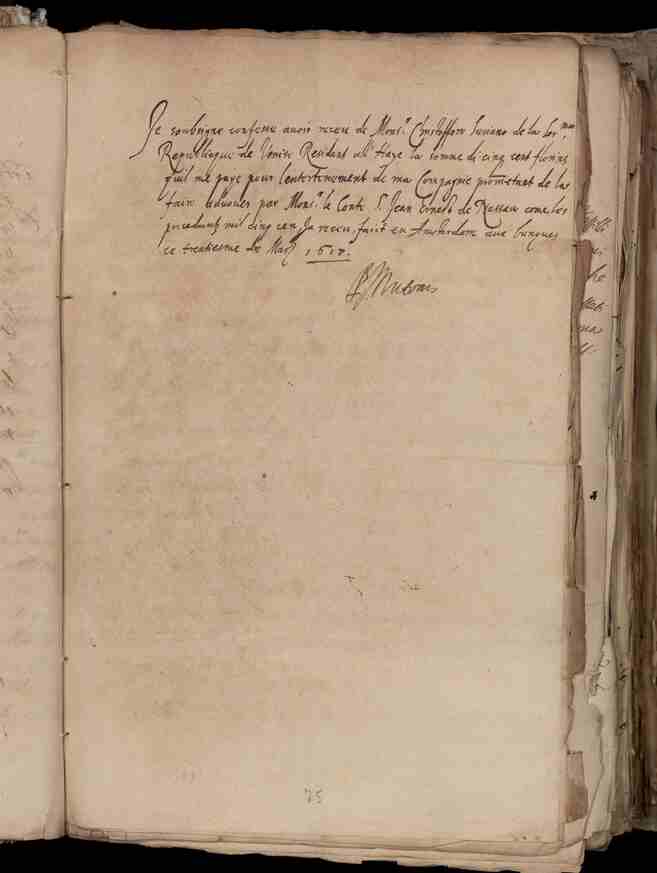 Je soubsigne confesse avoir receu de Mons.r Christofforo Suriano de la Ser.ma
Republicque de Venise Resident all Haye la somme di cinq cent florins
quil me paye pour lentertenement de ma Compagnie promettent de las
faire advouer par Mons.r le Conte J. Jean Ernest de Nassau come les
precedents mil cinq cen Ja receu, faict en Amsterdam
ce trentiesme de Mars
75